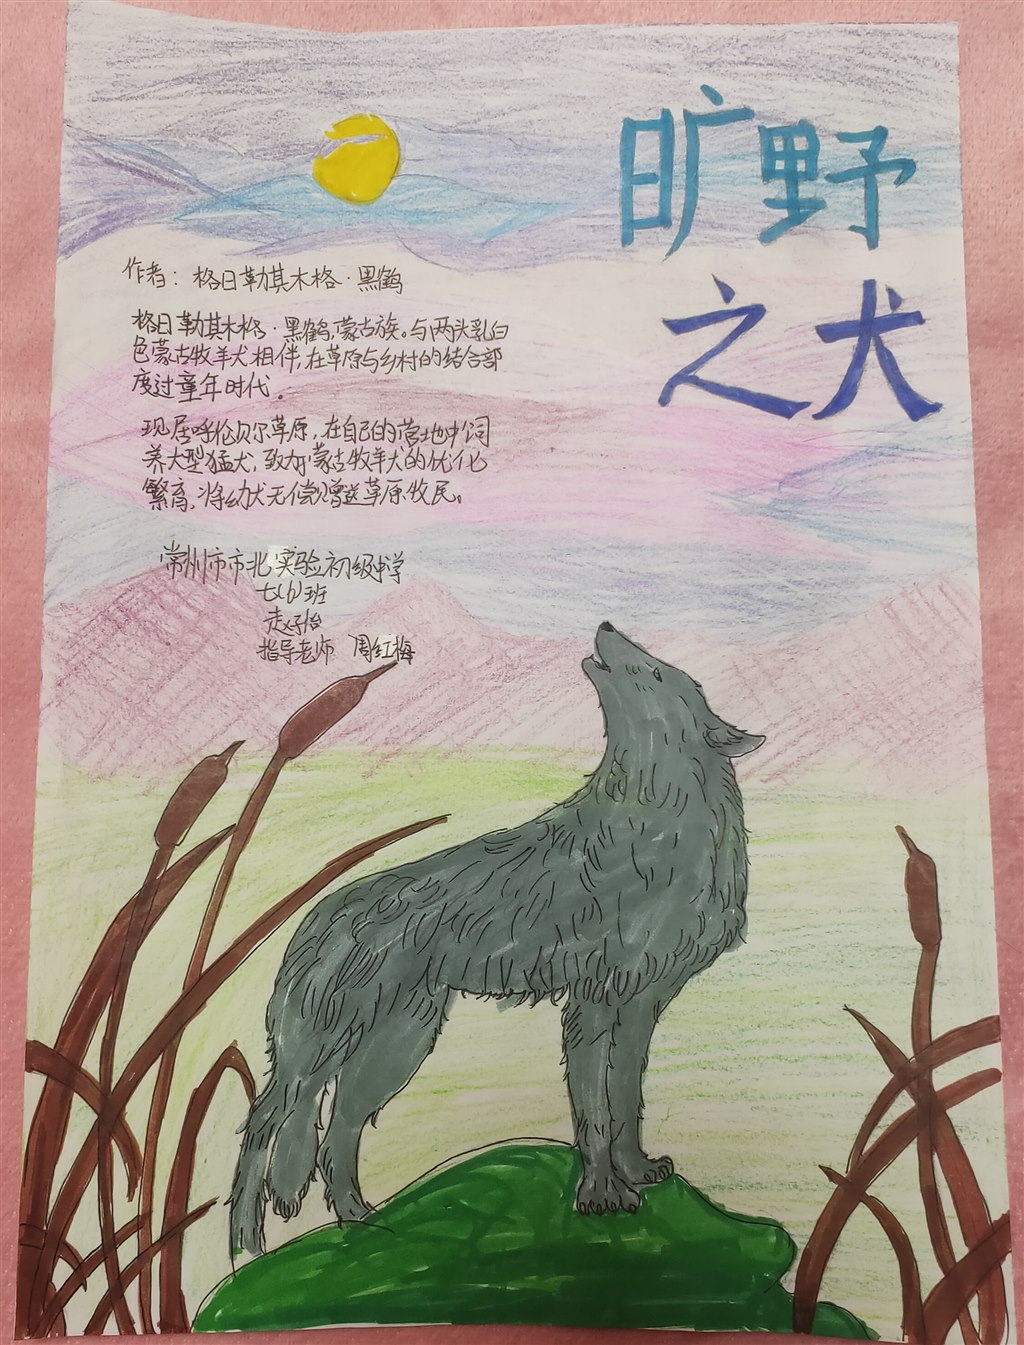 旷野
之犬
作者：格日勒其木格·黑鹤
格日勒其木格·黑鹤,蒙古族。与两头乳白
色蒙古牧羊犬相伴,在草原与乡村的结合部
度过童年时代。
现居呼伦贝尔草原,在自己的营地中饲
养大型猛犬,致力于蒙古牧羊犬的优化
繁育,将幼犬无偿赠送草原牧民。
常州市市北实验初级中学
七(6)班
赵子怡
指导老师 周红梅